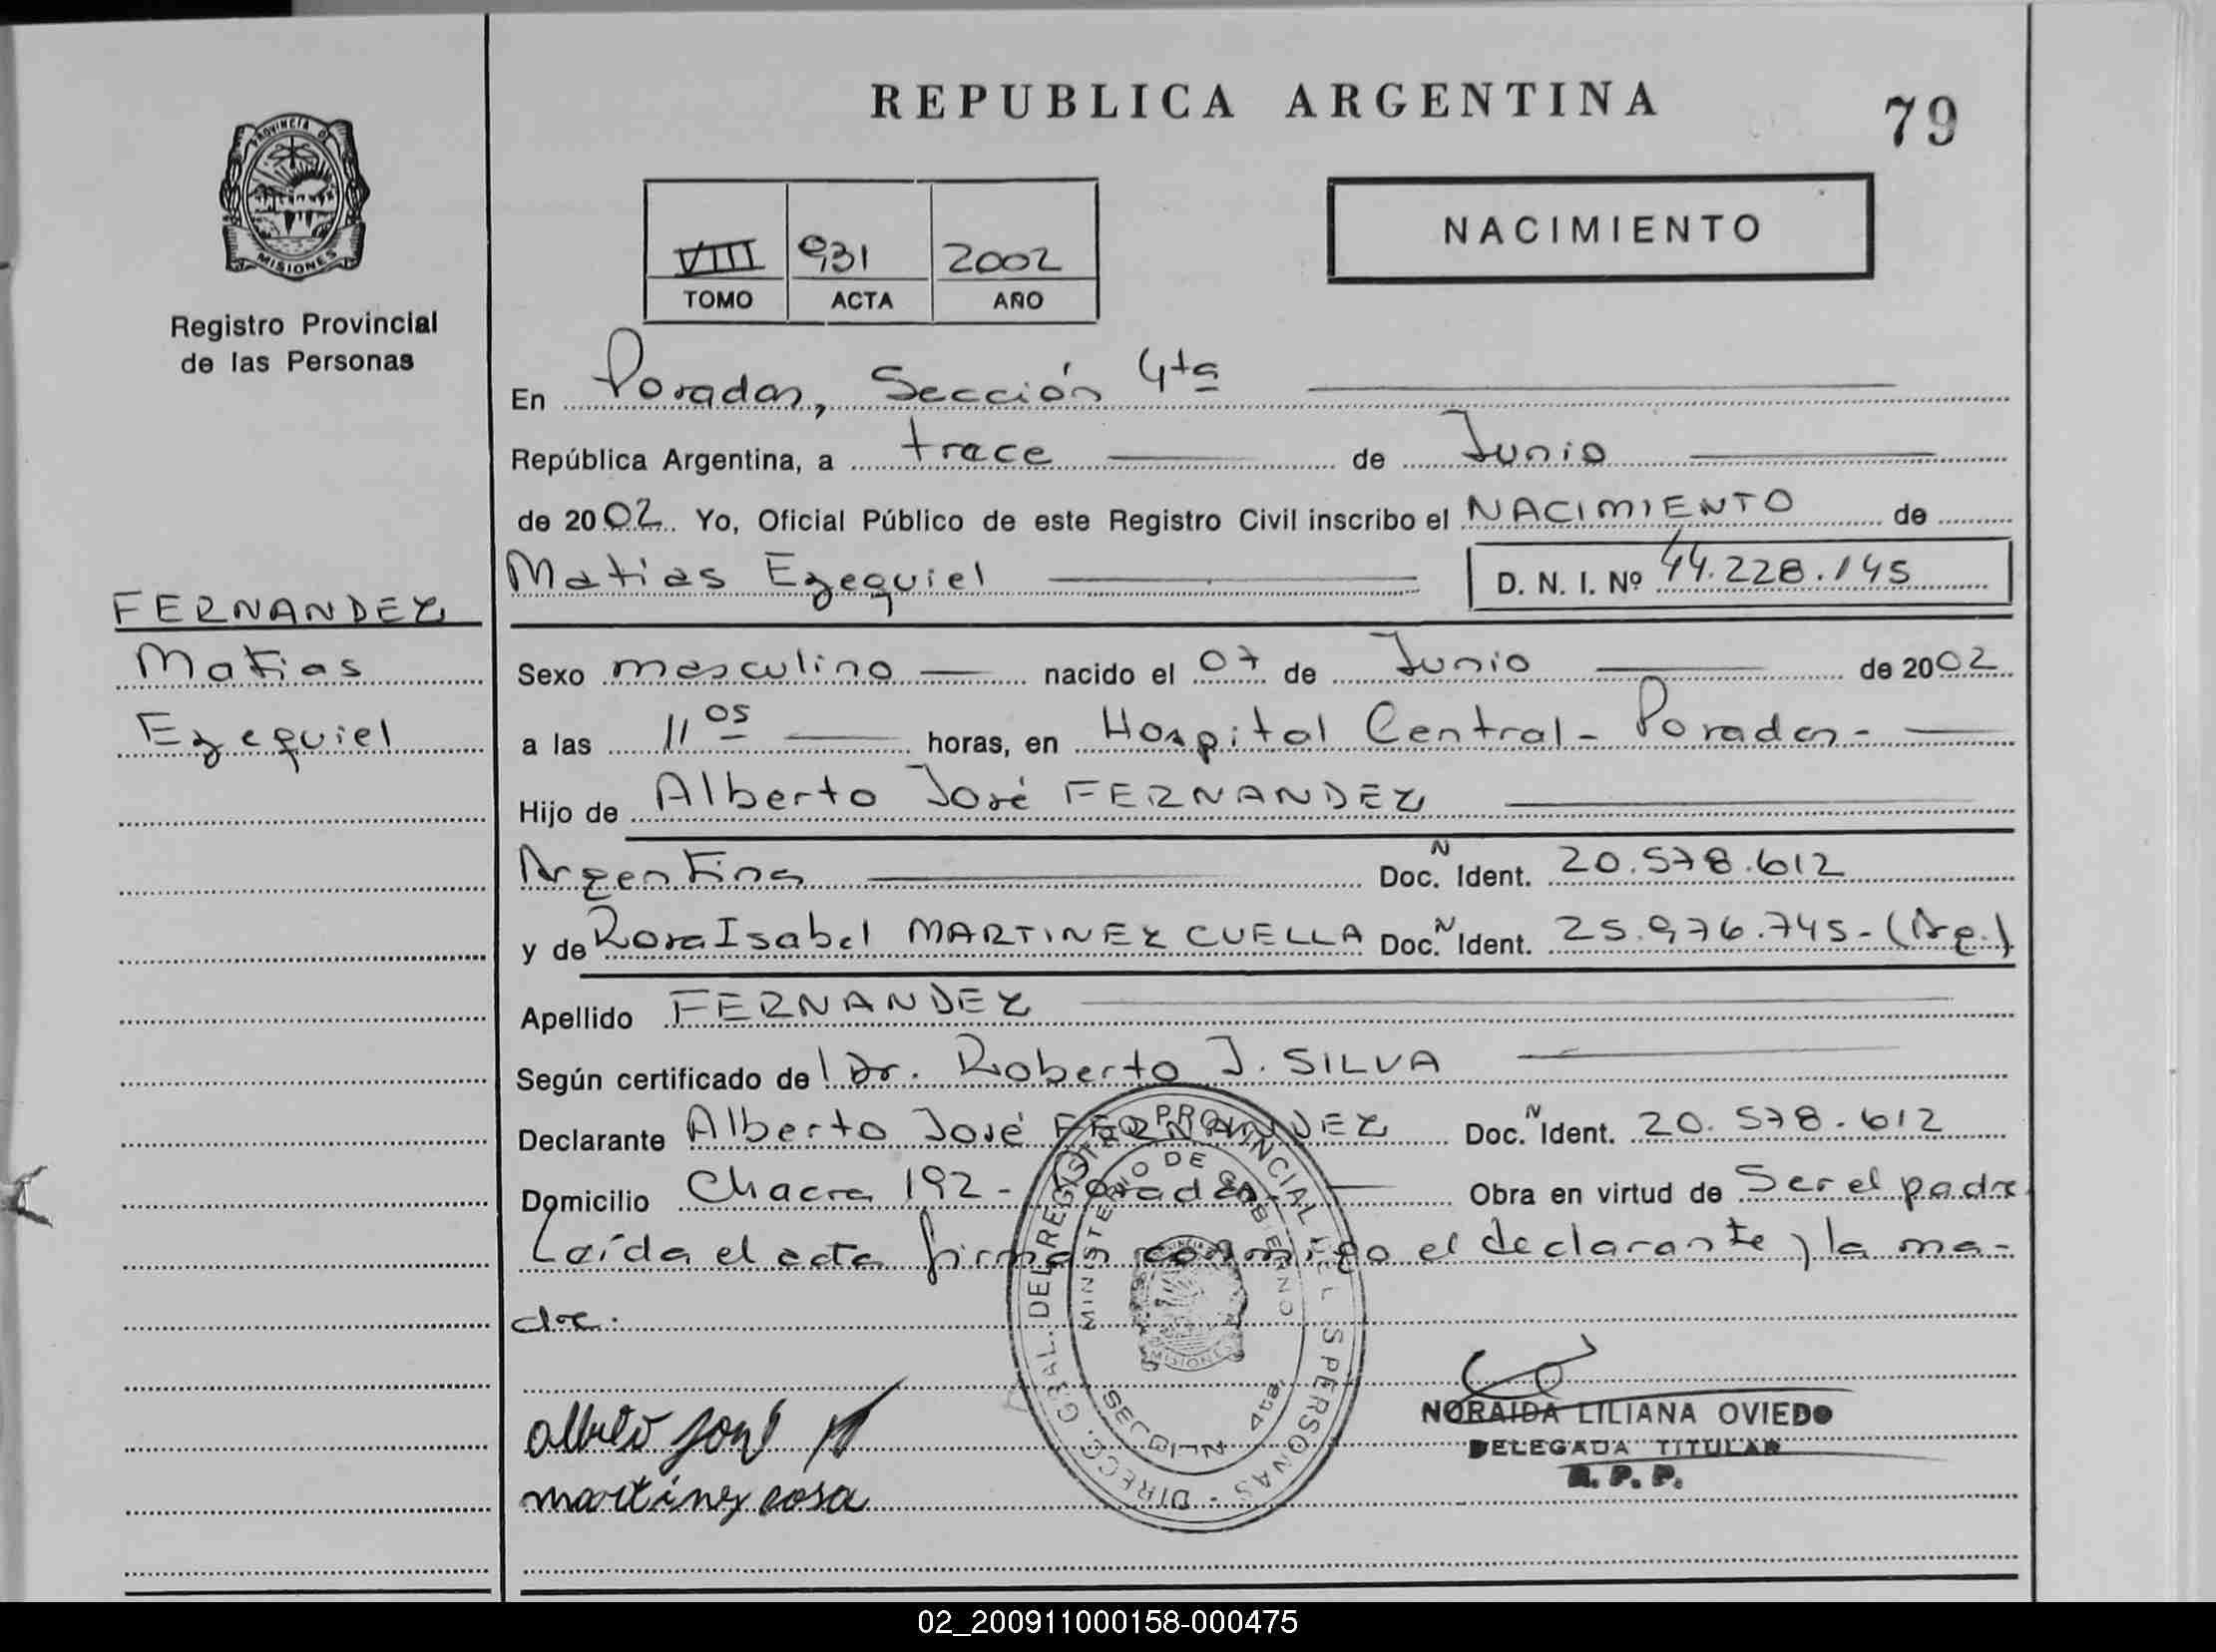 REPUBLICA ARGENTINA
79
PROVINCIA DE
MISIONES
Registro Provincial
de las Personas
VIII 931 2002
TOMO ACTA AÑO
NACIMIENTO
En Posadas, Sección 4ta
República Argentina, a trece de Junio
de 2002 Yo, Oficial Público de este Registro Civil inscribo el NACIMIENTO de
Matias Ezequiel D. N. I. Nº 44.228.145
FERNANDEZ
Matias
Ezequiel
Sexo masculino nacido el 07 de Junio de 2002
a las 11 05 horas, en Hospital Central - Posadas -
Hijo de Alberto José FERNANDEZ
Argentina Doc. N Ident. 20.578.612
y de Rosa Isabel MARTINEZ CUELLA Doc. N Ident. 25.976.745 - (Arg.)
Apellido FERNANDEZ
Según certificado del Dr. Roberto J. SILVA
Declarante Alberto José FERNANDEZ Doc. N Ident. 20.578.612
Domicilio Chacra 192 - Posadas - Obra en virtud de Ser el padre
Leída el acta firman conmigo el declarante y la ma-
dre.
DIRECC. GRAL. DEL REGISTRO PROVINCIAL DE LAS PERSONAS
MINISTERIO DE GOBIERNO
MISIONES
SECCION 4ta.
alberto José
martinez rosa
NORAIDA LILIANA OVIEDO
DELEGADA TITULAR
R. P. P.
02_200911000158-000475